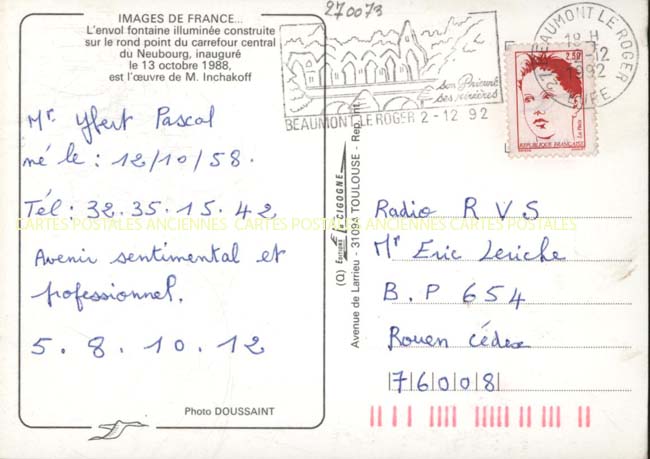 270073
IMAGES DE FRANCE...
L'envol fontaine illuminée construite
sur le rond point du carrefour central
du Neubourg, inauguré
le 13 octobre 1988,
est l'œuvre de M. Inchakoff
Mr Yfert Pascal
né le : 12/10/58.
Tél : 32.35.15.42
Avenir sentimental et
professionnel.
5. 8. 10. 12
Photo DOUSSAINT
CARTES POSTALES ANCIENNES CARTES POSTALES ANCIENNES CARTES POSTALES
(Q) Éditions La CIGOGNE
Avenue de Larrieu - 3109 TOULOUSE - Rep. Int.
son Prieuré
ses rivières
BEAUMONT LE ROGER 2-12 92
BEAUMONT LE ROGER
18 H
12
1992
EURE
2,50
La Poste
REPUBLIQUE FRANÇAISE
Radio R V S
Mr Eric Leriche
B.P 654
Rouen Cédex
76008